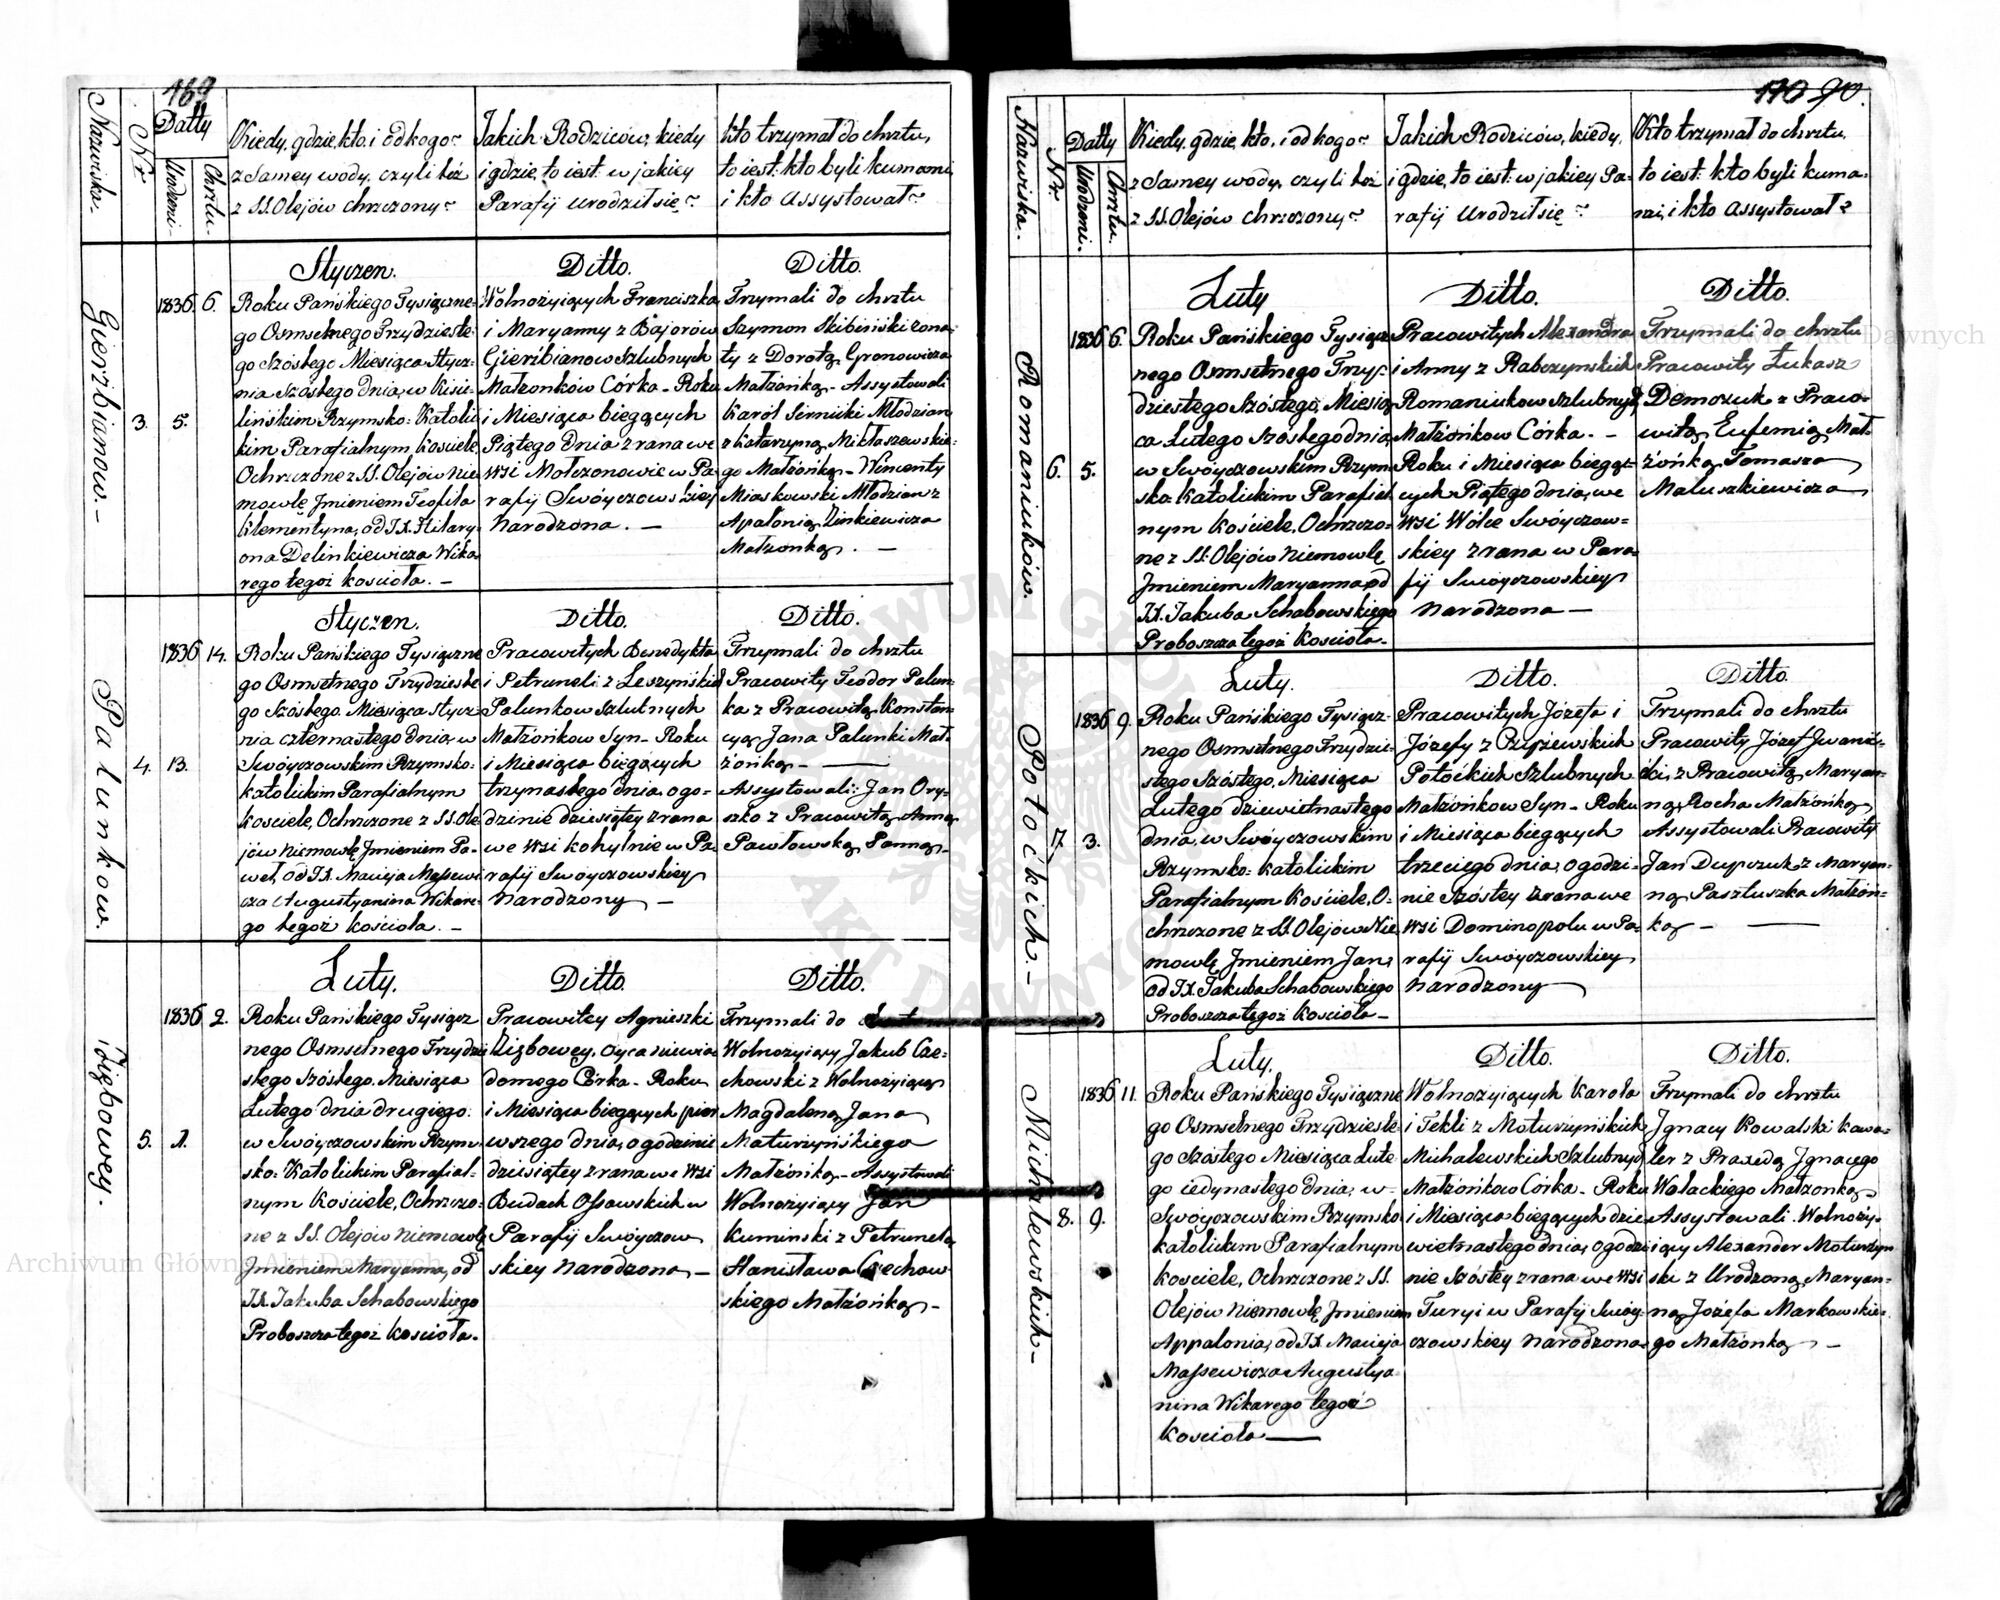 169
Nazwiska.
Nr
Datty
Urodzeni.
Chrztu.
Kiedy, gdzie, kto, i od kogo
z Samey wody, czyli też
z SS. Olejów chrzczony?
Jakich Rodziców, kiedy
i gdzie, to iest: w jakiey
Parafij urodził się?
kto trzymał do chrztu,
to iest: kto byli kumami
i kto Assystował?
Gierżbianow.-
3.
1836
5.
6.
Styczen.
Roku Pańskiego Tysiączne=
go Osmsetnego Trzydzieste-
go Szóstego Miesiąca Stycz-
nia Szóstego dnia, w Kisie-
lińskim Rzymsko-Katolic-
kim Parafialnym Kościele,
Ochrzczone z SS. Olejów Nie
mowlę Jmieniem Teofila
Klementyna, od JX. Hilary-
ona Delinkiewicza Wika
rego tegoż kościoła. -
Ditto.
Wolnożyiących Franciszka
i Maryanny z Bajorów
Gierżbianow Szlubnych
Małżonków Córka - Roku
i Miesiąca bieżących
Piątego Dnia z rana we
wsi Mołczanowie w Pa-
rafij Swóyczowskiey
Narodzona. -
Ditto.
Trzymali do chrztu
Szymon Skibiński żona-
ty z Dorotą Gronowicza
Małżonką - Assystowali
Karól Sirnicki Młodzian
z Katarzyną Mikłaszewskie-
go Małżonką - Wincenty
Miaskowski Młodzian z
Apalonią Zinkiewicza
Małżonką. -
Palunkow.
4.
1836
13.
14.
Styczen.
Roku Pańskiego Tysiączne
go Osmsetnego Trzydzieste
go Szóstego Miesiąca Stycz-
nia czternastego Dnia, w
Swóyczowskim Rzymsko-
katolickim Parafialnym
kościele, Ochrzczone z SS. Ole-
jów Niemowlę Jmieniem Pa-
weł, od JX. Macieja Massewi
cza Augustyanina Wikare-
go tegoż kościoła. -
Ditto.
Pracowitych Benedykta
i Petruneli z Leszyńskich
Palunkow Szlubnych
Małżonkow Syn - Roku
i Miesiąca bieżących
trzynastego dnia, o go-
dzinie dziesiątey z rana
we wsi Kohylnie w Pa
rafij Swóyczowskiey
Narodzony -
Ditto.
Trzymali do chrztu
Pracowity Teodor Palun-
ka z Pracowitą Konstan-
cyą Jana Palunki Mał-
żonką -
Assystowali: Jan Ory-
szko z Pracowitą Anną
Pawłowską Panną -
Zięb owey.
5.
1836
1.
2.
Luty.
Roku Pańskiego Tysiącz
nego Osmsetnego Trzydzie
stego Szóstego Miesiąca
Lutego dnia drugiego
w Swóyczowskim Rzym-
sko-Katolickim Parafial-
nym Kościele, Ochrzczo-
ne z SS. Olejów Niemowlę
Jmieniem Maryanna, od
JX. Jakuba Schabowskiego
Proboszcza tegoż Kościoła.
Ditto.
Pracowitey Agnieszki
Ziębowey, oyca niewia
domego Córka - Roku
i Miesiąca bieżących pier
wszego dnia, o godzinie
dziesiątey z rana we wsi
Budach Ossowskich w
Parafij Swóyczow
skiey Narodzona -
Ditto.
Trzymali do
Wolnożyiący Jakub Cze-
chowski z Wolnożyiącą
Magdaleną Jana
Maturzyńskiego
Małżonką - Assystowali
Wolnożyiący Jan
Kuminski z Petrunelą
Stanisława Czechow-
skiego Małżonką -
170 90.
Nazwiska.
Nr.
Datty
Urodzeni.
Chrztu.
Kiedy, gdzie, kto, i od kogo
z Samey wody, czyli też
z SS. Olejów chrzczony?
Jakich Rodziców, kiedy,
i gdzie, to iest: w jakiey Pa-
rafij Urodził się?
Kto trzymał do chrztu,
to iest: kto byli kuma-
mi, i kto Assystował?
Romaniuków.
6.
1836
5.
6.
Luty
Roku Pańskiego Tysiącz
nego Osmsetnego Trzy-
dziestego Szóstego, Miesią
ca Lutego Szóstego dnia,
w Swóyczowskim Rzym
sko-katolickim Parafial
nym kościele, Ochrzczo-
ne z SS. Olejów Niemowlę
Jmieniem Maryanna, od
JX. Jakuba Schabowskiego
Proboszcza tegoż Kościoła.
Ditto.
Pracowitych Alexandra
i Anny z Rabczynskich
Romaniukow Szlubnych
Małżonkow Córka. -
Roku i Miesiąca bieżą-
cych Piątego dnia, we
wsi Wólce Swóyczow=
skiey z rana w Para
fij Swóyczowskiey
Narodzona -
Ditto.
Trzymali do chrztu
Pracowity Łukasz
Demczuk z Praco-
witą Eufemią Mał-
żonką Tomasza
Matuszkiewicza
Potoćkich. -
7.
1836
3.
9.
Luty.
Roku Pańskiego Tysiącz-
nego Osmsetnego Trzydzie-
stego Szóstego, Miesiąca
Lutego dziewietnastego
dnia, w Swóyczowskim
Rzymsko-katolickim
Parafialnym Kościele, O-
chrzczone z SS. Olejów Nie
mowlę Jmieniem Jan,
od JX. Jakuba Schabowskiego
Proboszcza tegoż Kościoła -
Ditto.
Pracowitych Józefa i
Józefy z Czyżewskich
Potoćkich Szlubnych
Małżonkow Syn - Roku
i Miesiąca bieżących
trzeciego dnia, o godzi-
nie Szóstey z rana we
wsi Dominopolu w Pa-
rafij Swóyczowskiey
Narodzony
Ditto
Trzymali do chrztu
Pracowity Józef Jwanic-
ki, z Pracowitą Maryan-
ną Rocha Małżonką
Assystowali Pracowity
Jan Dupczuk z Maryan-
ną Pasztuszka Małżon-
ką -
Michalewskich -
8.
1836
9.
11.
Luty.
Roku Pańskiego Tysiączne
go Osmsetnego Trzydzieste
go Szóstego Miesiąca Lute
go iedynastego Dnia, w
Swóyczowskim Rzymsko
katolickim Parafialnym
kościele, Ochrzczone z SS.
Olejów Niemowlę Jmieniem
Appalonia, od JX. Macieja
Massewicza Augustya
nina Wikarego tegoż
Kościoła -
Ditto.
Wolnożyiących Karola
i Tekli z Moturzyńskich
Michalewskich Szlubnych
Małżonkow Córka - Roku
i Miesiąca bieżących dzie
wietnastego dnia, o godzi
nie Szóstey z rana we wsi
Turyi w Parafij Swóy-
czowskiey Narodzona
Ditto.
Trzymali do chrztu
Jgnacy Kowalski kawa-
ler z Praxedą Jgnacego
Wołackiego Małżonką
Assystowali Wolnoży-
iący Alexander Moturzyn
ski z Urodzoną Maryan-
ną Józefa Markowskie-
go Małżonką -
Archiwum Główne Akt Dawnych
Archiwum Główne Akt Dawnych
ARCHIWUM GŁÓWNE AKT DAWNYCH